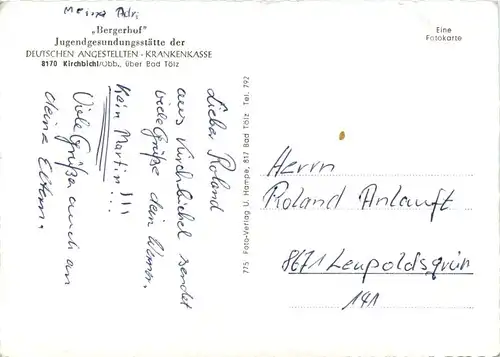 Meine Adr:
„Bergerhof"
Jugendgesundungsstätte der
DEUTSCHEN ANGESTELLTEN - KRANKENKASSE
8170 Kirchbichl/Obb., über Bad Tölz
Eine
Fotokarte
Lieber Roland
aus Kirchbichel sendet
viele Grüße dein
Kein Martin!!!
Viele Grüße auch an
deine Eltern.
775 Fotoverlag U. Hampe, 817 Bad Tölz Tel. 792
Herrn
Roland Anlauft
8671 Leupoldsgrün
141